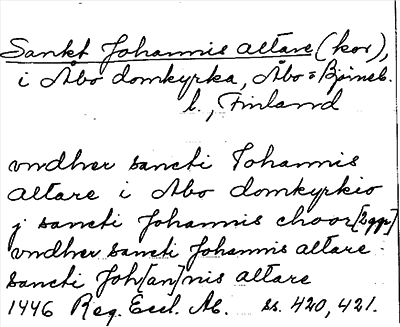 Sankt Johannis altare (kor),
i Åbo domkyrka, Åbo o Björneb.
l., Finland
vndher sancti Johannis
altare i Abo domkyrkio
j sancti Johannis choor [2ggr]
vndher sancti Johannis altare
sancti Joh[an]nis altare
1446 Reg. Eccl. Ab. ss. 420, 421.